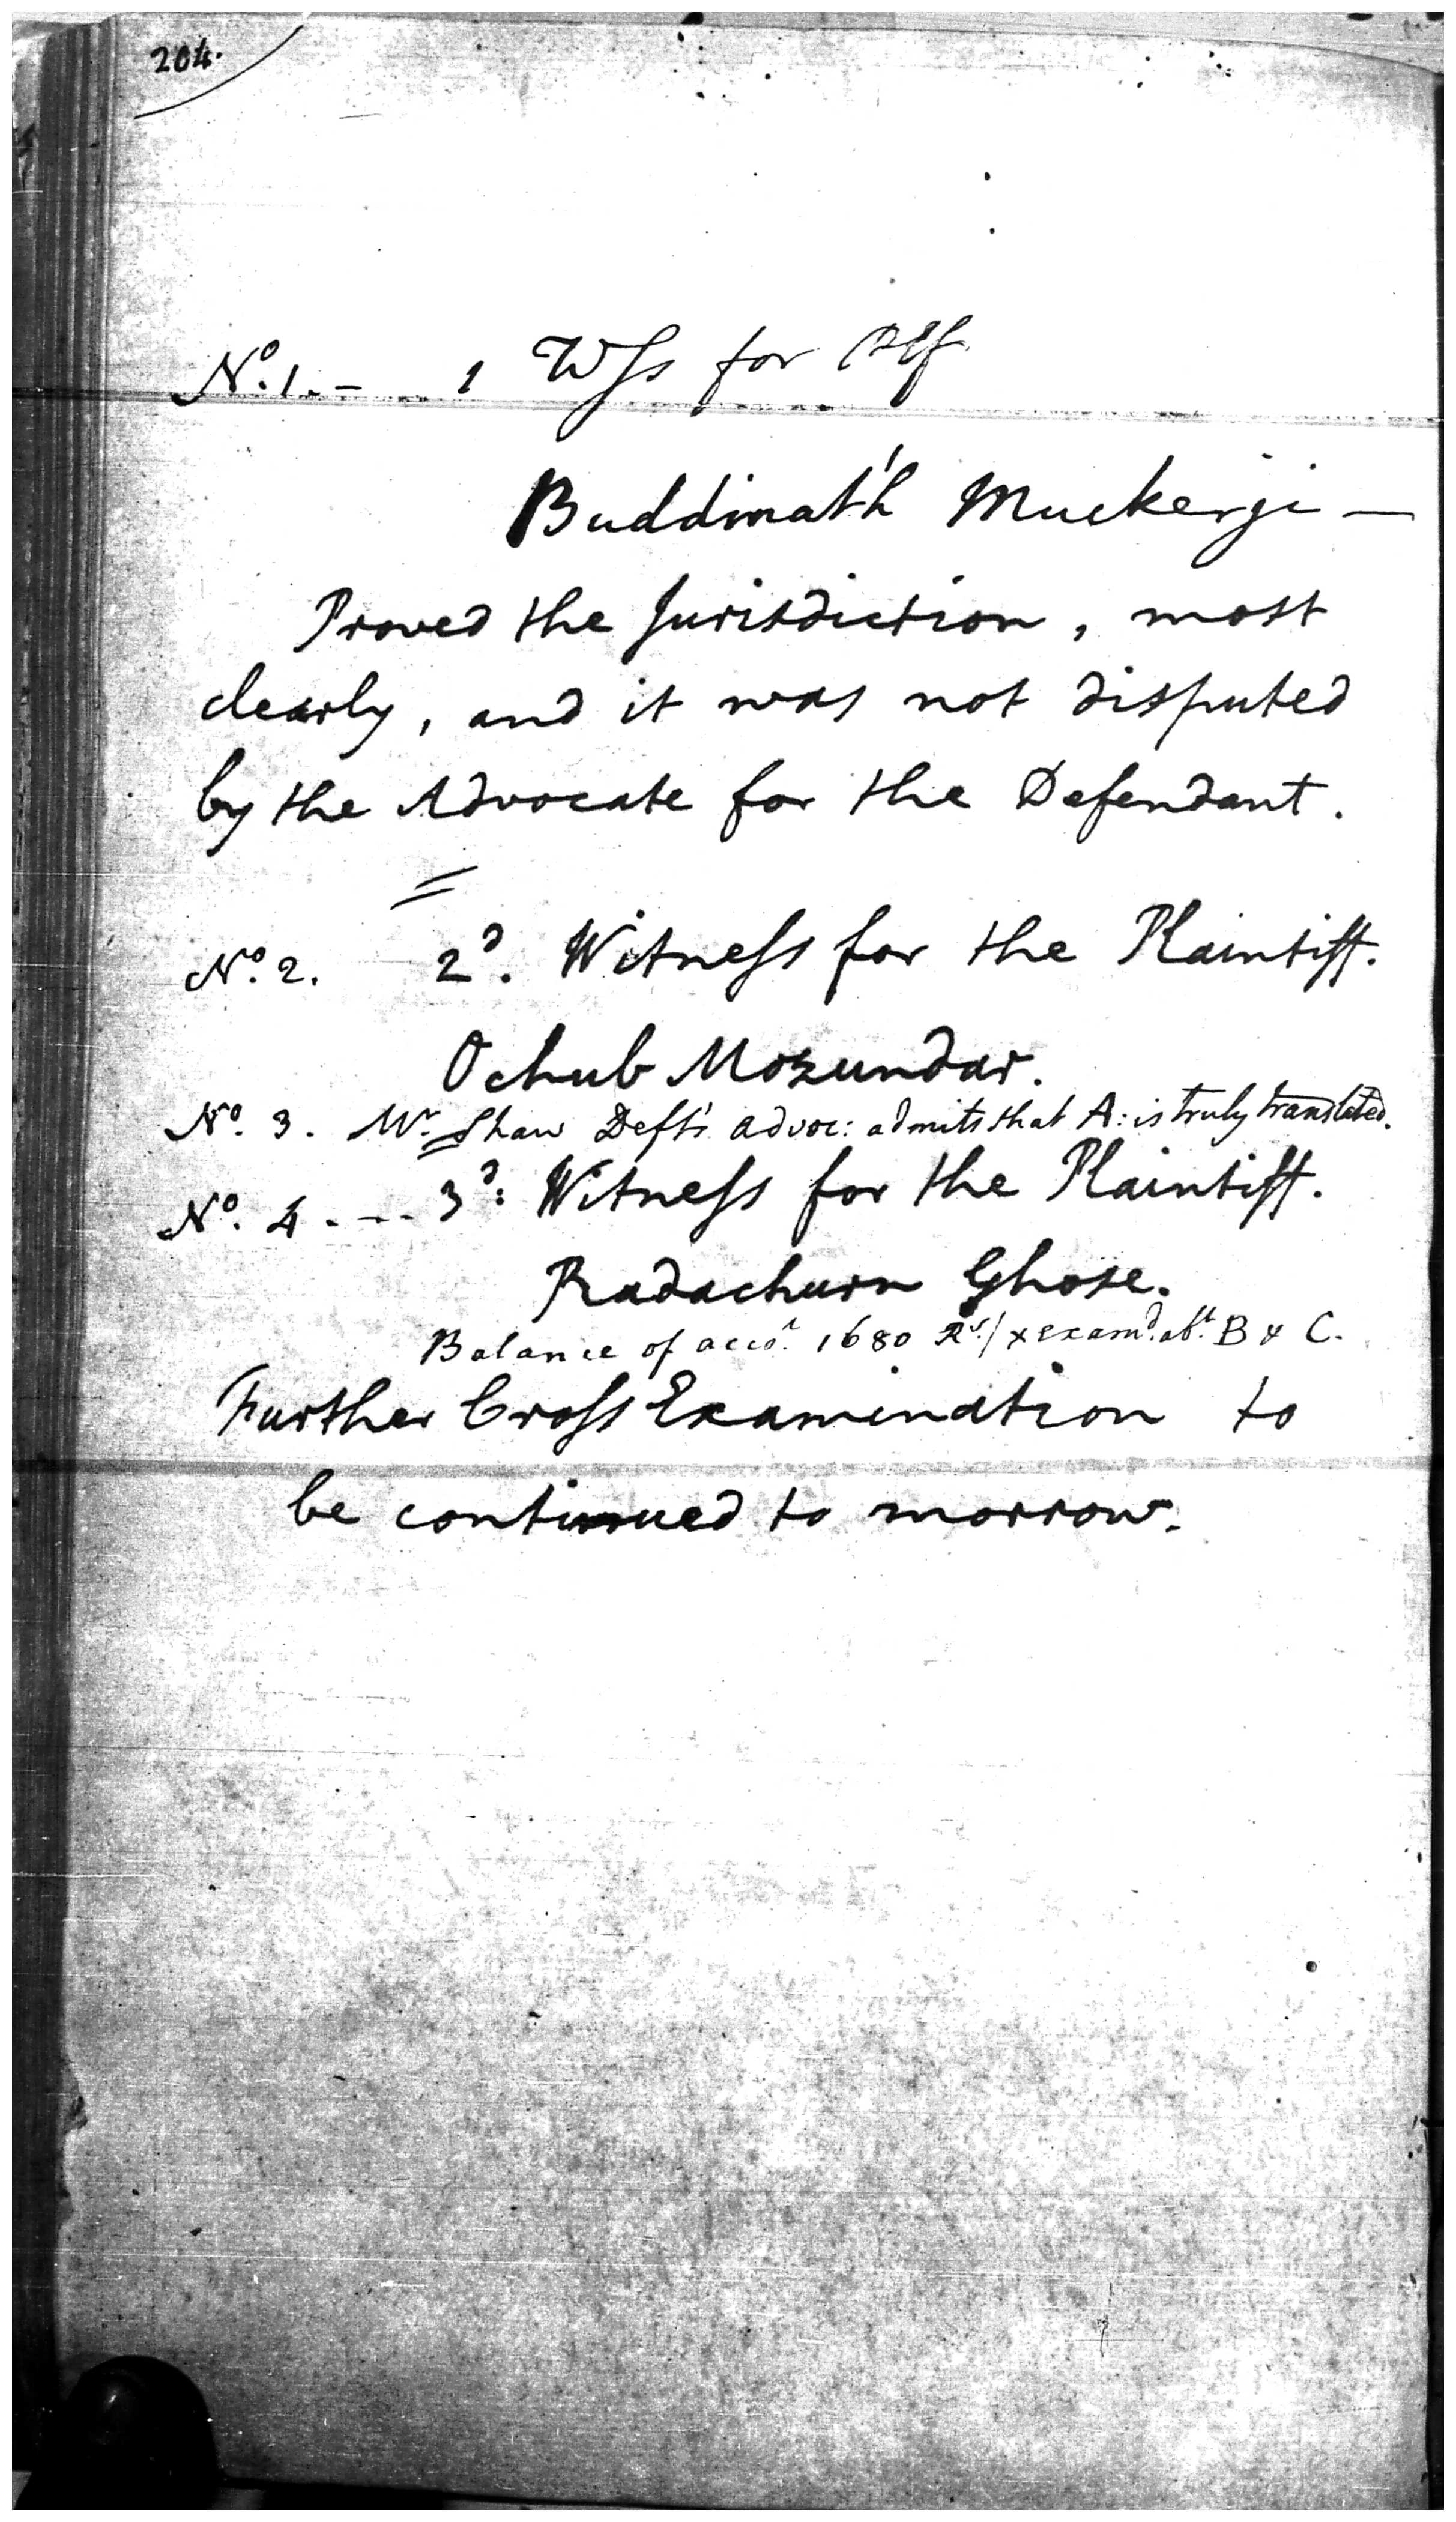 204.
No. 1. - 1 Wss for Plf
Buddinath Muckerji —
Proved the Jurisdiction, most
clearly, and it was not disputed
by the Advocate for the Defendant.
No. 2. 2d. Witness for the Plaintiff.
Ochub Mozundar.
No. 3. Mr Shaw Deft's advoc: admits that A: is truly translated.
No. 4 - - - 3d: Witness for the Plaintiff.
Radachurn Ghose.
Balance of acco.t 1680 Rs./ x examd. abt. B & C.
Further Cross Examination to
be continued to morrow.